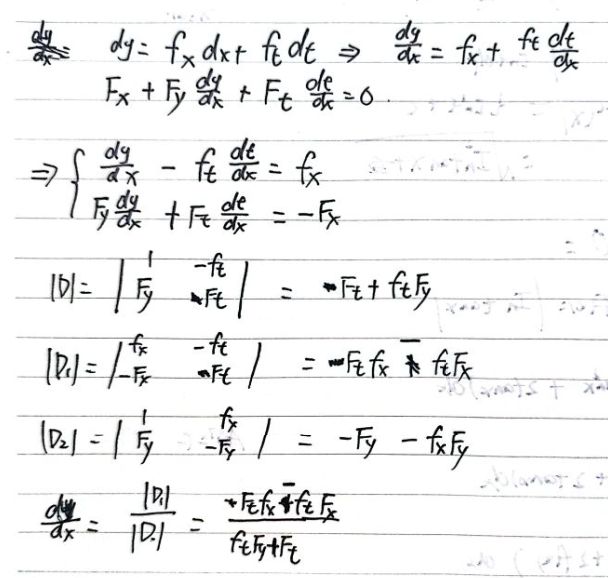 dy = f_x dx + f_t dt ⇒ dy/dx = f_x + f_t dt/dx
F_x + F_y dy/dx + F_t dt/dx = 0.
⇒ { dy/dx - f_t dt/dx = f_x
F_y dy/dx + F_t dt/dx = -F_x
|D| = | 1 -f_t ; F_y F_t | = F_t + f_t F_y
|D_1| = | f_x -f_t ; -F_x F_t | = F_t f_x - f_t F_x
|D_2| = | 1 f_x ; F_y -F_y | = -F_y - f_x F_y
dy/dx = |D_1| / |D| = (F_t f_x - f_t F_x) / (f_t F_y + F_t)